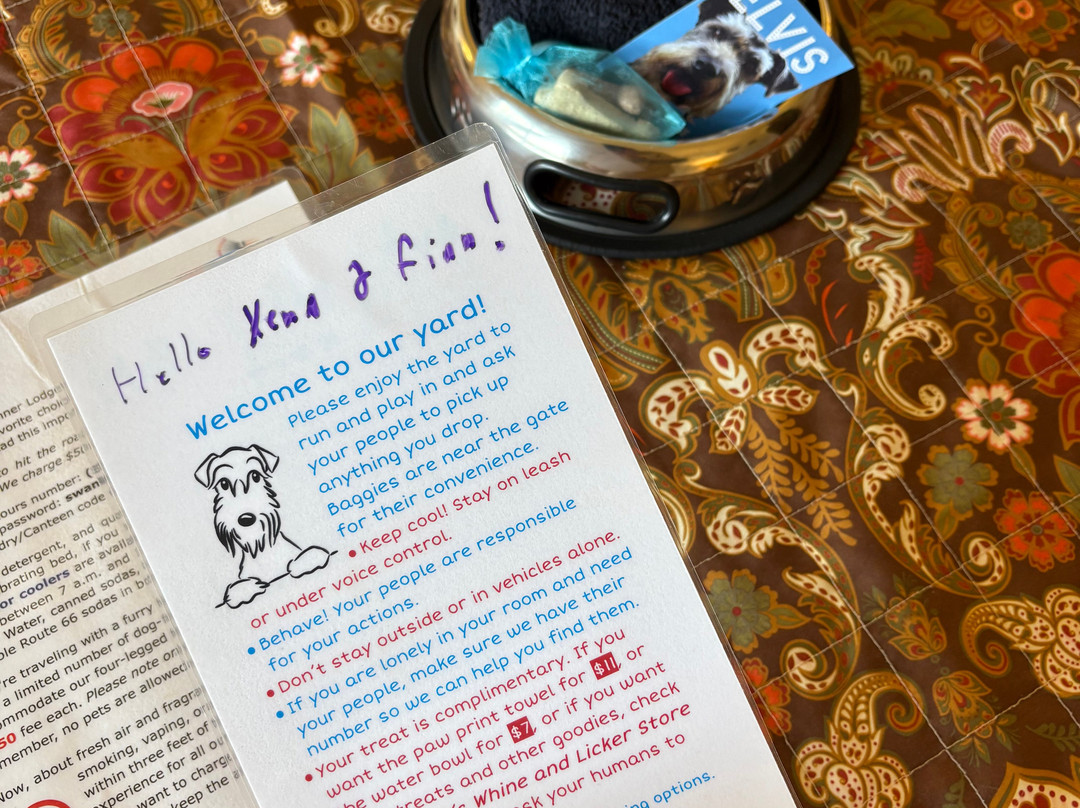 ELVIS
Hello Xena & Finn!
Welcome to our yard!
Please enjoy the yard to
run and play in and ask
your people to pick up
anything you drop.
Baggies are near the gate
for their convenience.
• Keep cool! Stay on leash
or under voice control.
• Behave! Your people are responsible
for your actions.
• Don't stay outside or in vehicles alone.
• If you are lonely in your room and need
your people, make sure we have their
number so we can help you find them.
• Your treat is complimentary. If you
want the paw print towel for $11, or
he water bowl for $7, or if you want
treats and other goodies, check
's Whine and Licker Store
sk your humans to
ng options.
nner Lodg
vorite choi
ad this imp
o hit the roa
We charge $50
ours number:
password: swan
dry/Canteen code
detergent, and qua
brating bed, if you
or coolers are availa
between 7 a.m. and
Water, canned sodas,
ble Route 66 sodas in b
're traveling with a furry
a limited number of dog-
ommodate our four-legged
50 fee each. Please note on
member, no pets are allowed
ow, about fresh air and fragra
smoking, vaping, or
within three feet of
experience for all ou
want to charg
keep the